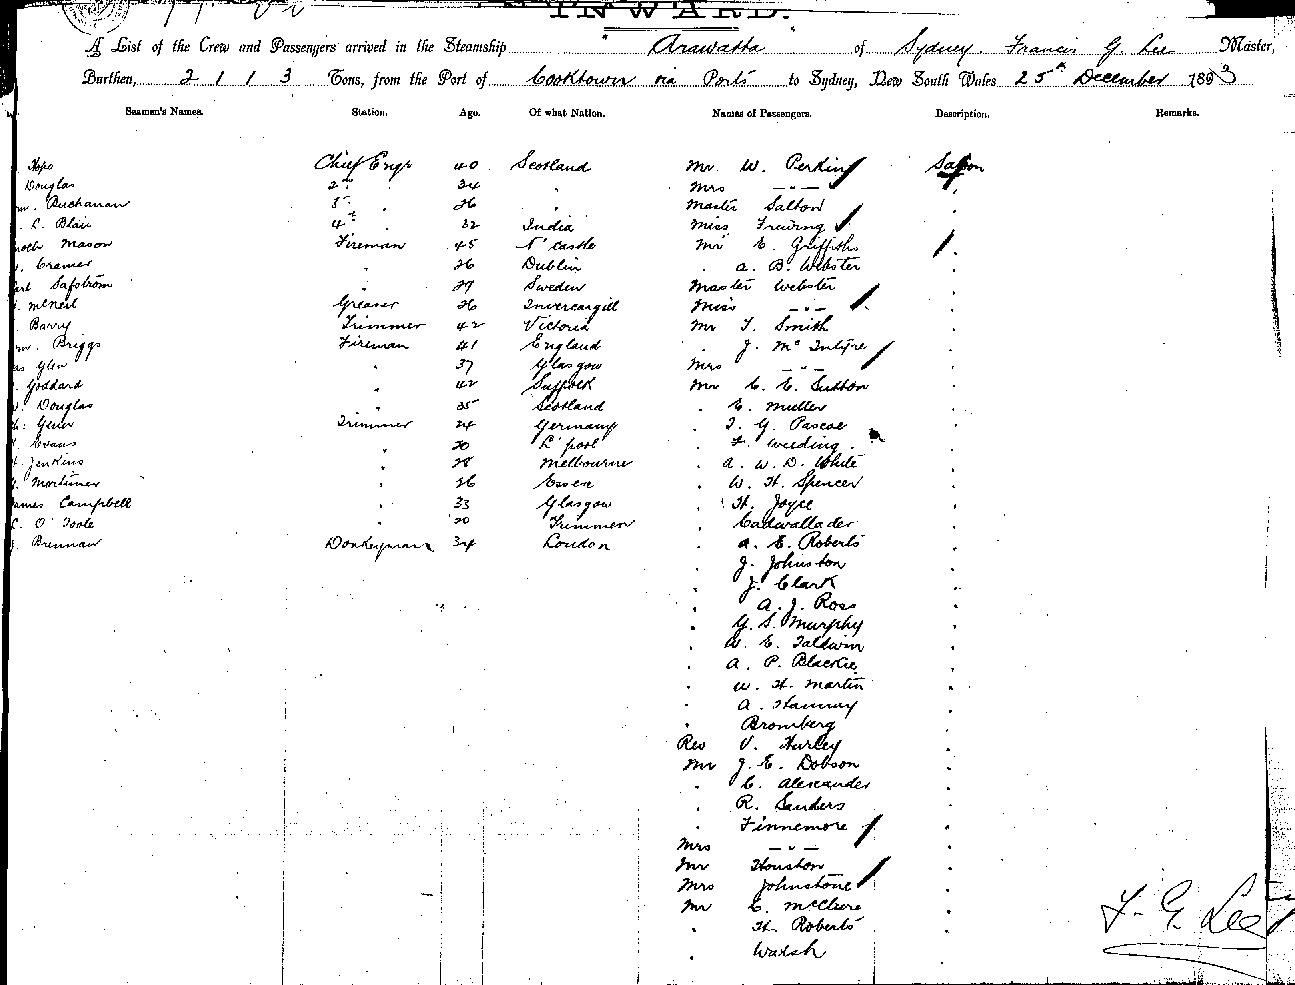 INWARD.
A List of the Crew and Passengers arrived in the Steamship "Arawatta" of Sydney. Francis G. Lee Master,
Burthen, 2113 Tons, from the Port of Cooktown via Ports to Sydney, New South Wales 25th December 1893
Seamen's Names. Station. Age. Of what Nation. Names of Passengers. Description. Remarks.
Hope Chief Engr 40 Scotland Mr W. Perkin Saloon
Douglas 2nd " 34 " Mrs —"— "
m. Buchanan 3rd " 26 " Master Salton "
L. Blair 4th " 32 India Miss "
Mason Fireman 45 N'castle Mr E. Griffiths "
Cramer " 26 Dublin " A. B. Webster "
arl Safstrom " 29 Sweden Master Webster "
McNeil Greaser 26 Invercargill Miss —"— "
Barry Trimmer 42 Victoria Mr T. Smith "
m. Briggs Fireman 41 England " J. McIntyre "
as Glen " 37 Glasgow Mrs —"— "
Goddard " 42 Suffolk Mr C. E. Sutton "
Douglas " 35 Scotland " E. Muller "
Trimmer 24 Germany " T. G. Pascoe "
Evans " 20 L'pool " F. Weeding "
Jenkins " 28 Melbourne " A. W. D. White "
Mortimer " 26 Essex " W. H. Spencer "
ames Campbell " 33 Glasgow " H. Joyce "
O'Toole " 20 Trimmer " Cadwallader "
Brennan Donkeyman 34 London " A. E. Roberts "
" J. Johnston "
" J. Clark "
" A. J. Ross "
" G. S. Murphy "
" W. E. "
" A. P. Blackie "
" W. H. Martin "
" A. Hannay "
" Bromberg "
Rev V. Hurley "
Mr J. E. Dobson "
" C. Alexander "
" R. Sanders "
" Finnemore "
Mrs —"— "
Mr Houston "
Mrs Johnstone "
Mr E. McClure "
" H. Roberts "
" Walsh "
F. G. Lee